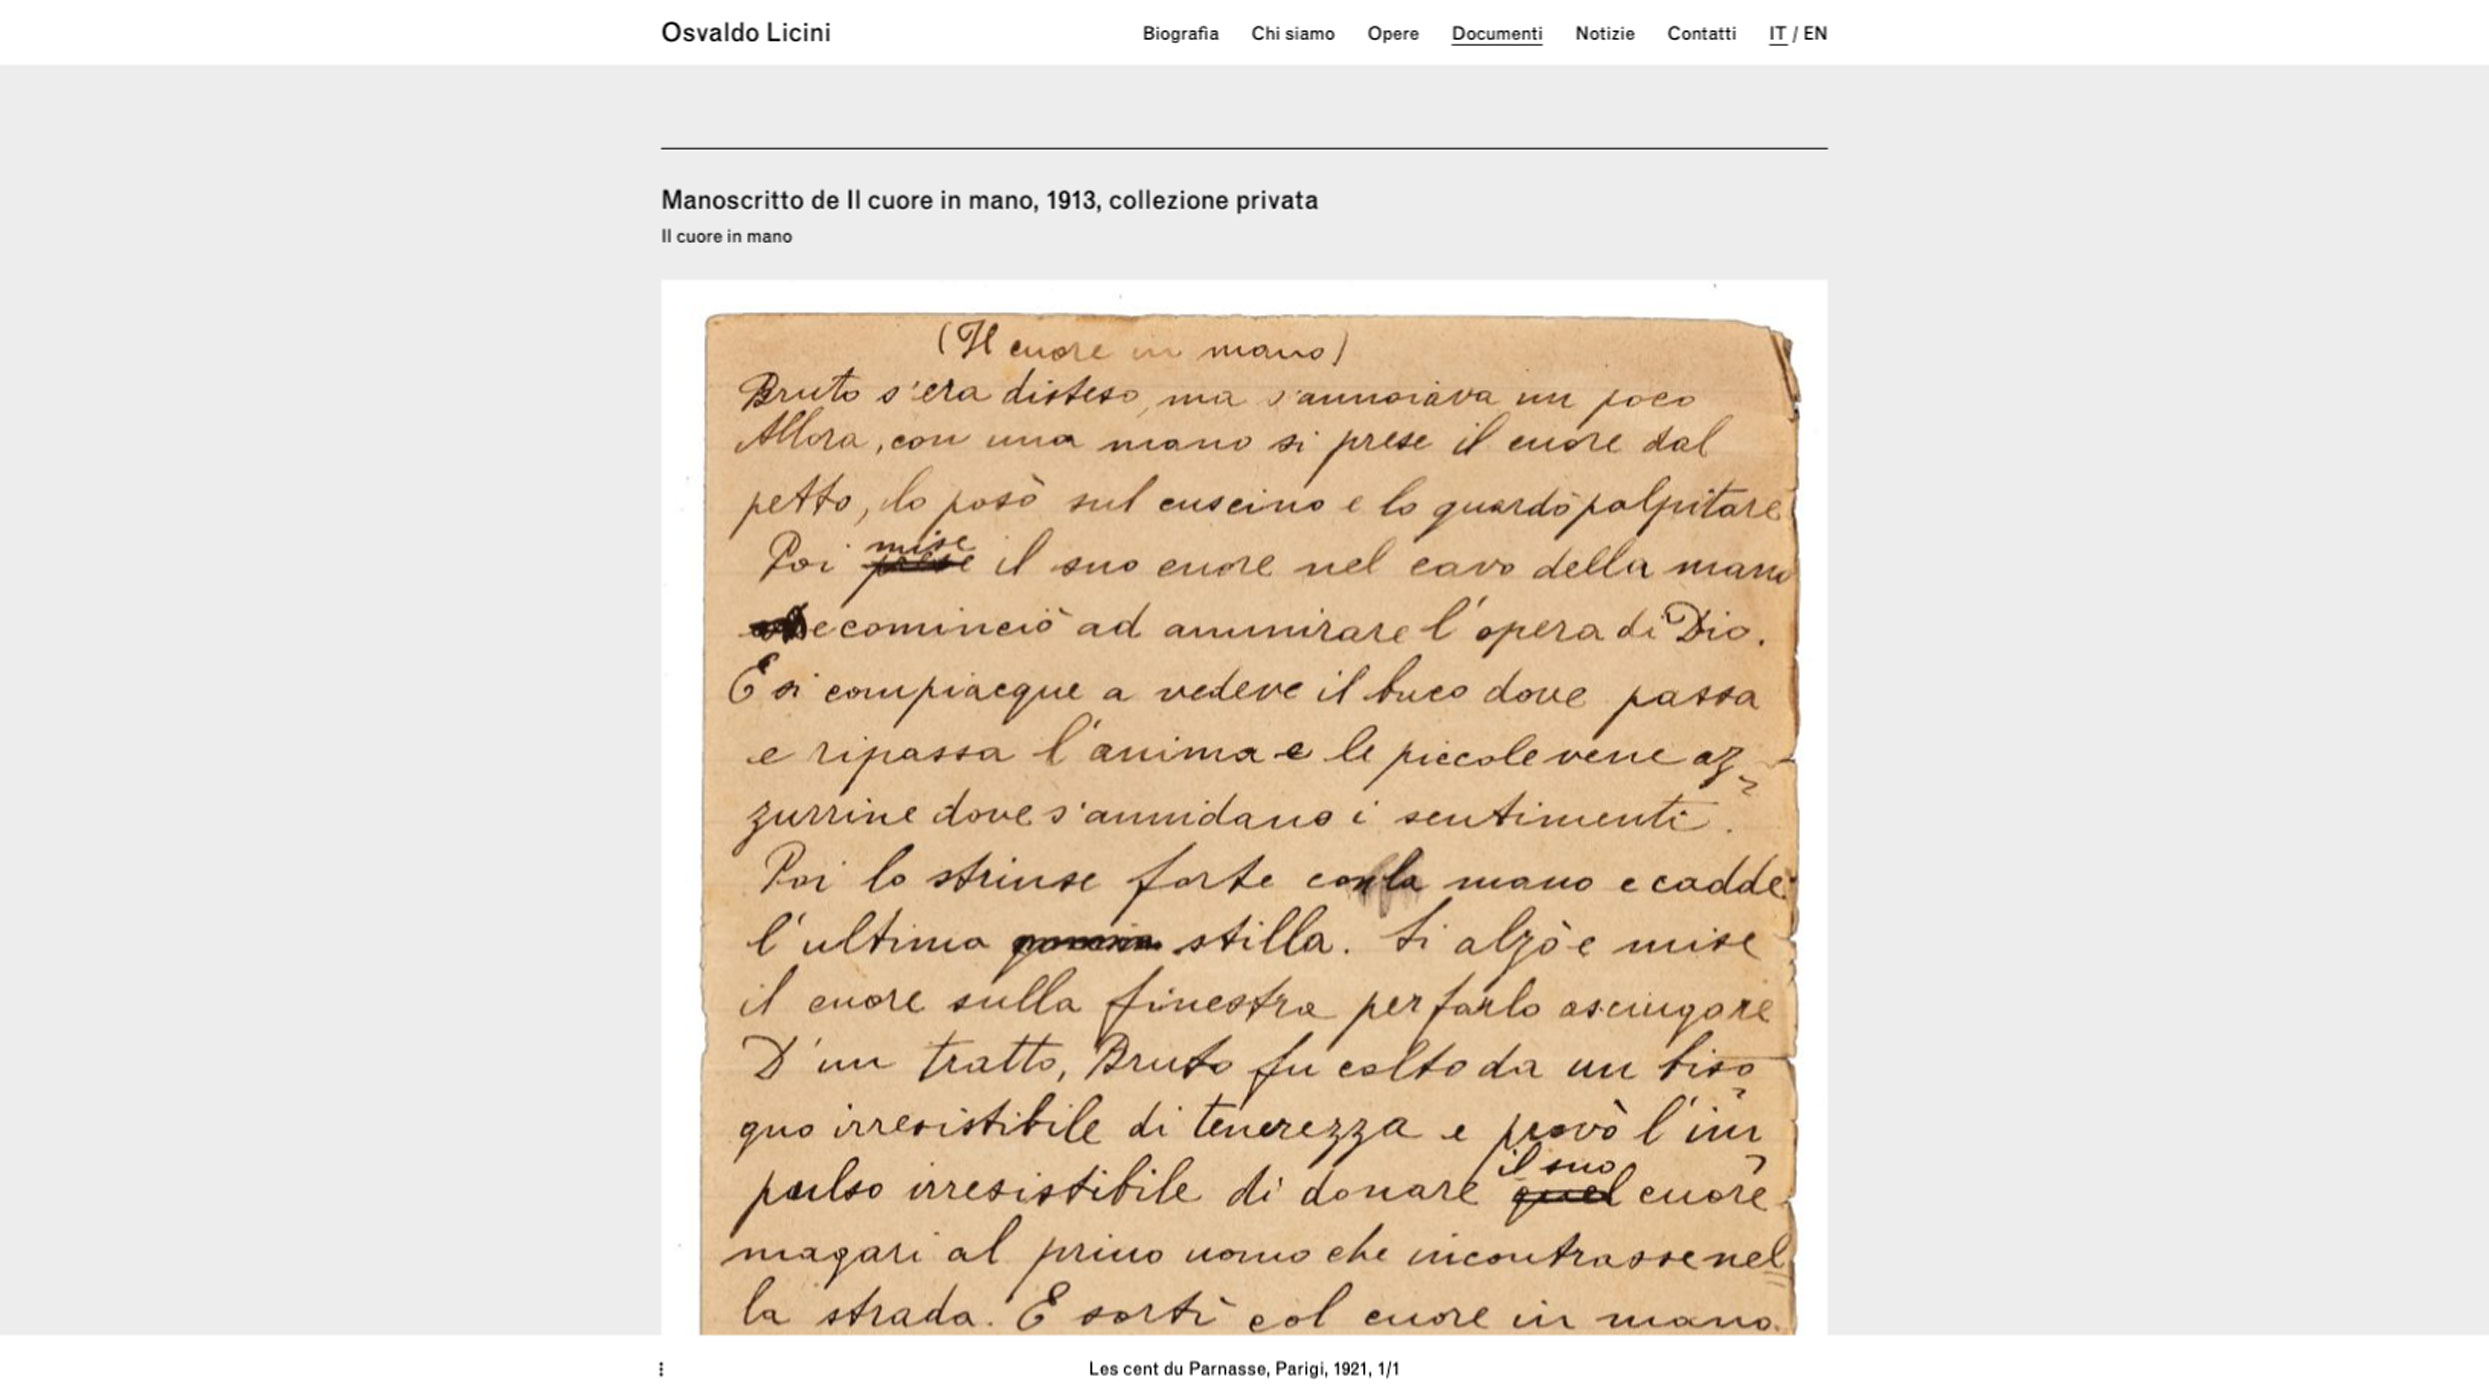 Osvaldo Licini
Biografia Chi siamo Opere Documenti Notizie Contatti IT / EN
Manoscritto de Il cuore in mano, 1913, collezione privata
Il cuore in mano
(Il cuore in mano)
Bruto s'era disteso, ma s'annoiava un poco
Allora, con una mano si prese il cuore dal
petto, lo posò sul cuscino e lo guardò palpitare
mise
Poi prese il suo cuore nel cavo della mano
e cominciò ad ammirare l'opera di Dio.
E si compiacque a vedere il buco dove passa
e ripassa l'anima e le piccole vene az-
zurrine dove s'annidano i sentimenti.
Poi lo strinse forte con la mano e cadde
l'ultima stilla. Si alzò e mise
il cuore sulla finestra per farlo asciugare
D'un tratto, Bruto fu colto da un biso-
gno irresistibile di tenerezza e provò l'im-
il suo
pulso irresistibile di donare quel cuore
magari al primo uomo che incontrasse nel-
la strada. E sortì col cuore in mano.
Les cent du Parnasse, Parigi, 1921, 1/1